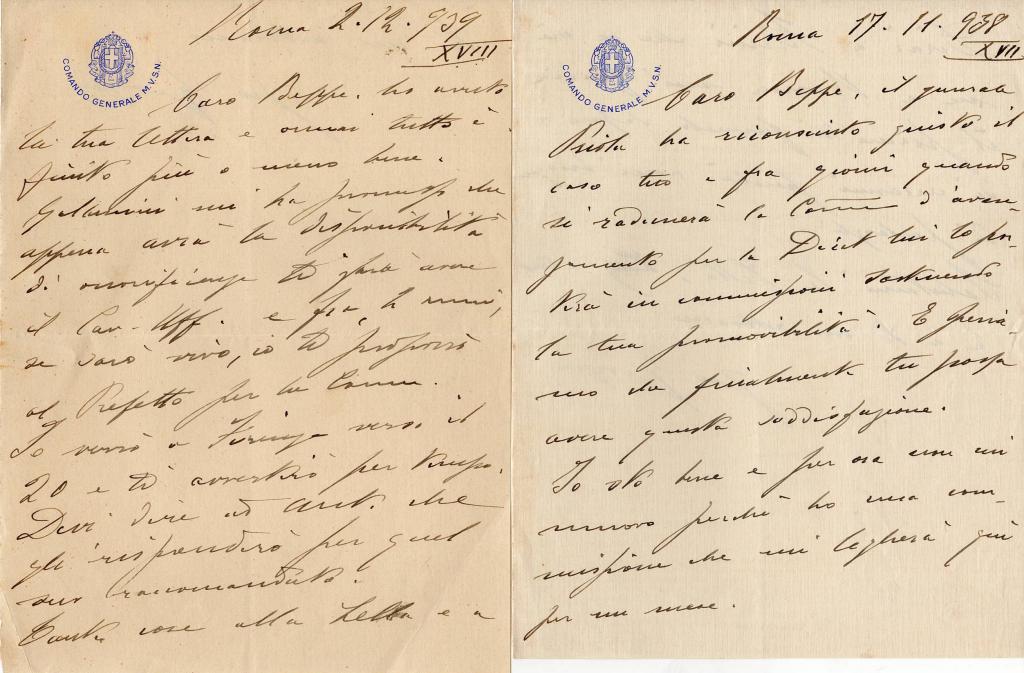 Roma 2.12.939
XVIII
COMANDO GENERALE M.V.S.N.
Caro Beppe, ho avuto
la tua lettera e ormai tutto è
finito più o meno bene.
mi ha promesso che
appena avrà la disponibilità
di onorificenze ti farà avere
il Cav. Uff. e fra h mesi,
se sarò vivo, io ti proporrò
al Prefetto per la Comm.
Io verrò a Firenze verso il
20 e ti avvertirò per tempo.
Devi dire ad Ant. che
gli risponderò per quel
suo raccomandato.
Tante cose alla Lella e a
Roma 17.11.938
XVII
COMANDO GENERALE M.V.S.N.
Caro Beppe, il generale
ha riconosciuto giusto il
caso tuo e fra giorni quando
si radunerà la Comm d'avan-
zamento per la Dicat lui lo por-
terà in commissione sostenendo
la tua promovibilità. E speria-
mo che finalmente tu possa
avere questa soddisfazione.
Io sto bene e per ora non mi
muovo perchè ho una com-
missione che mi legherà qui
per un mese.